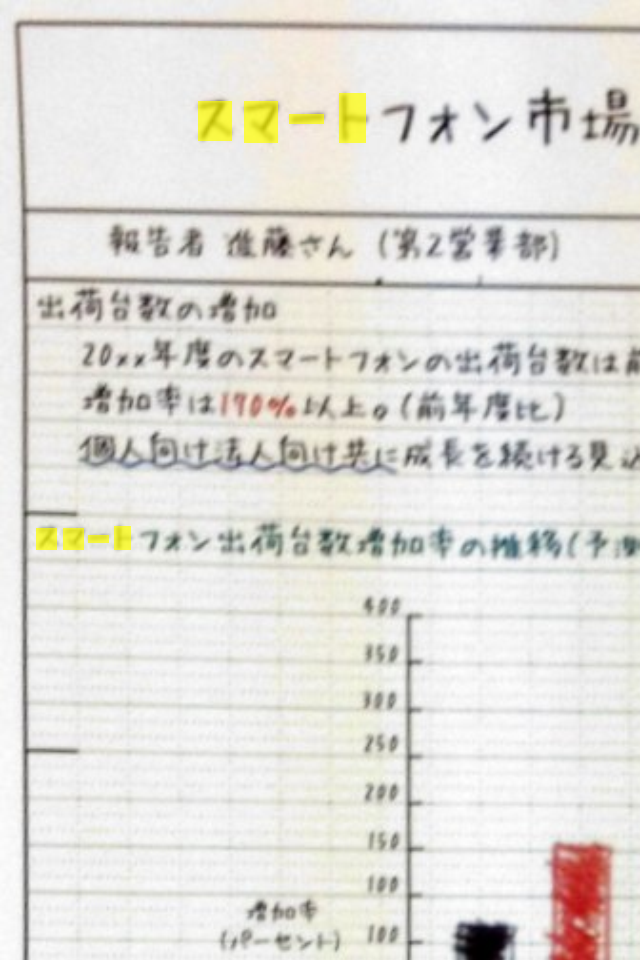 スマートフォン市場
報告者 進藤さん (第2営業部)
出荷台数の増加
20xx年度のスマートフォンの出荷台数は前
増加率は170%以上。(前年度比)
個人向け法人向け共に成長を続ける見込
スマートフォン出荷台数増加率の推移(予測
400
350
300
250
200
150
100
増加率
(パーセント) 100